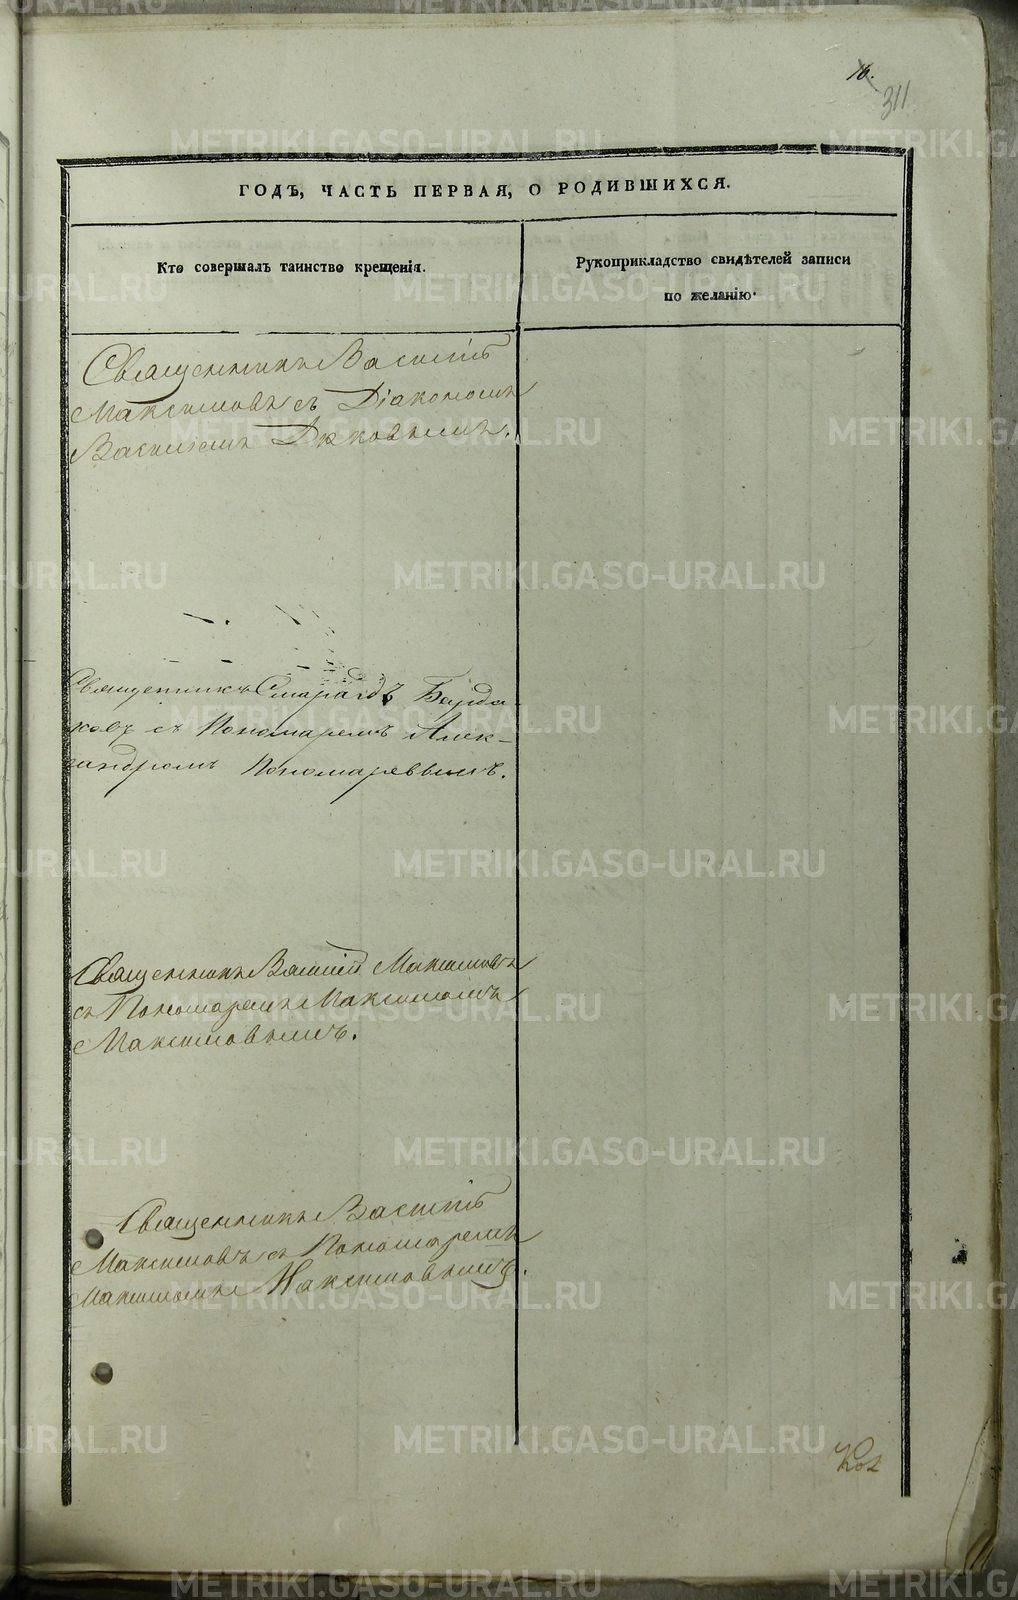 16.
311
ГОДЪ, ЧАСТЬ ПЕРВАЯ, О РОДИВШИХСЯ.
Кто совершалъ таинство крещенія.
Рукоприкладство свидѣтелей записи
по желанію.
Священникъ Василій
Максимовъ съ Діакономъ
Василіемъ
Священникъ Смарагдъ Бирдю-
ковъ съ Пономаремъ Алек-
сандромъ Пономаревымъ.
Священникъ Василій Максимовъ
съ Пономаремъ Максимомъ
Максимовымъ.
Священникъ Василій
Максимовъ съ Пономаремъ
Максимомъ Максимовымъ.
METRIKI.GASO-URAL.RU